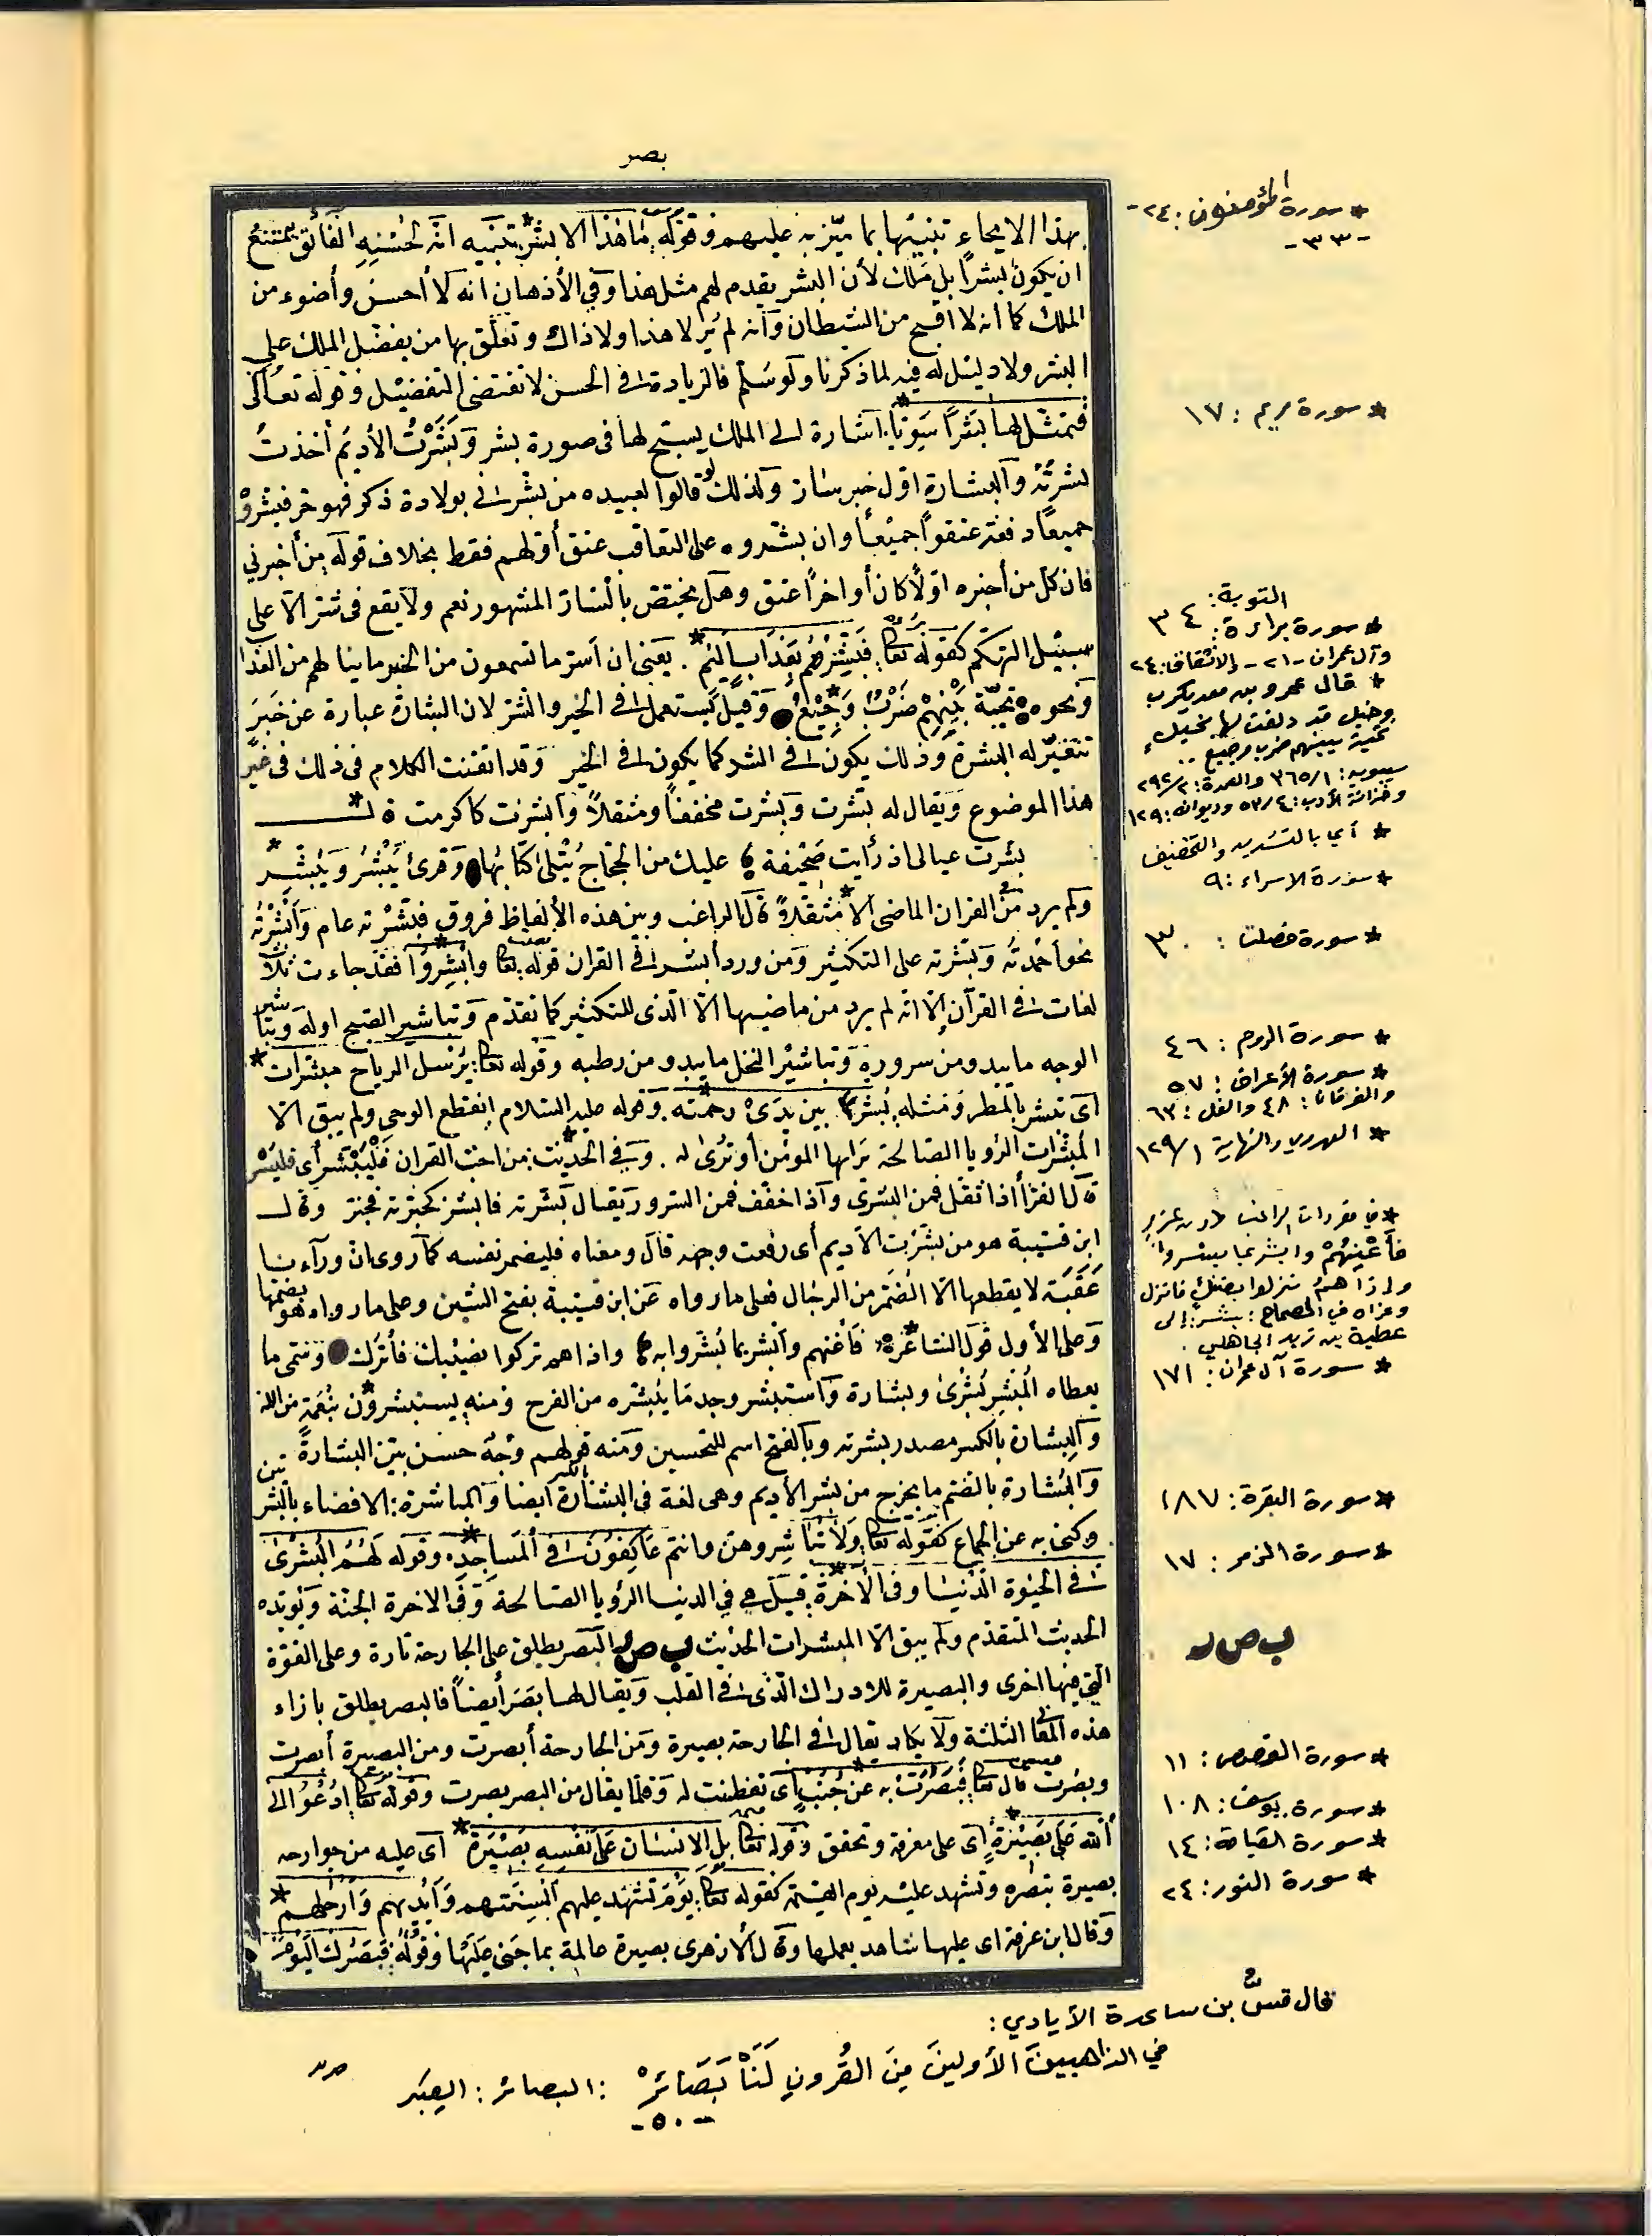 بصر
بهذا الايحاء تنبيها بما ميّز به عليهم وقوله ما هذا الا بشر* تنبيه انه لحسنه الفائق يمتنع
ان يكون بشرا بل ملك لأن البشر يقدم لهم مثل هذا وفي الأذهان انه لا أحسن وأضوء من
الملك كما انه لا اقبح من الشيطان وانه لم ير لا هذا ولا ذاك وتعلق بها من يفضل الملك على
البشر ولا دليل له فيه لما ذكرنا ولو سلم فالزيادة في الحسن لا تقتضي التفضيل وقوله تعالى
فتمثل لها بشرا سويا* اشارة الى الملك يسبح لها في صورة بشر وبشرت الأديم أخذت
بشرته والبشارة اول خبر سار ولذلك قالوا لو قال لعبيده من بشرني بولادة ذكر فهو حر فبشروه
جميعا دفعة عتقوا جميعا وان بشروه على التعاقب عتق أولهم فقط بخلاف قوله من أخبرني
فان كل من أخبره اولا كان أو اخرا عتق وهل يختص بالسار المشهور نعم ولا يقع في شر الا على
سبيل التهكم كقوله تعا فبشرهم بعذاب اليم* . يعني ان أسر ما تسمعون من الخبر ما ينالهم من العذاب
ونحوه تحية بينهم ضرب وجيع* وقيل يستعمل في الخير والشر لان البشارة عبارة عن خبر
تتغير له البشرة وذلك يكون في الشر كما يكون في الخير وقد اتقنت الكلام في ذلك في غير
هذا الموضوع ويقال له بشرت وبشرت مخففا ومثقلا وأبشرت كاكرمت قال*
بشرت عيالي اذ رأيت صحيفة عليك من الحجاج يتلى كتابها وقرئ يبشر ويبشر*
ولم يرد من القران الماضي الا مثقلا* قال الراغب وبين هذه الألفاظ فروق فبشرته عام وأبشرته
نحو أحمدته وبشرته على التكثير ومن ورد أبشر في القران قوله تعا وابشروا* فقد جاءت ثلاث
لغات في القرآن الا انه لم يرد من ماضيها الا الذى للتكثير كما تقدم وتباشير الصبح اوله وتباشير
الوجه ما يبدو من سروره وتباشير النخل ما يبدو من رطبه وقوله تعا يرسل الرياح مبشرات*
اى تبشر بالمطر ومثله بشرا بين يدى رحمته* وقوله عليه السلام انقطع الوحي ولم يبق الا
المبشرات الرؤيا الصالحة يراها المؤمن أو ترى له . وفي الحديث* من احب القران فليبشر أى فليسر
قال الفرأ اذا ثقل فمن البشرى واذا خفف فمن السرور يقال بشرته فابشر كجبرته فجبر وقال
ابن قتيبة هو من بشرت الأديم أى رققت وجهه قال ومعناه فليضمر نفسه كما روى ان وراءنا
عقبة لا يقطعها الا الضمر من الرجال فعلى ما رواه عن ابن قتيبة بفتح الشين وعلى ما رواه هو بضمها
وعلى الأول قول الشاعر* فأغنهم وابشر بما بشروا به واذا هم تركوا بضنك فأنزل وسمى ما
يعطاه المبشر بشرى وبشارة واستبشر وجد ما يبشره من الفرح ومنه يستبشرون* بنعمة من الله
والبشارة بالكسر مصدر بشرته وبالفتح اسم للتحسين ومنه قولهم وجه حسن بين البشارة
والبشارة بالضم ما يخرج من بشر الأديم وهي لغة في البشارة ايضا والمباشرة الافضاء بالبشرتين
وكنى به عن الجماع كقوله تعا ولا تباشروهن وانتم عاكفون في المساجد* وقوله لهم البشرى
في الحيوة الدنيا وفي الآخرة* قيل هي في الدنيا الرؤيا الصالحة وفي الاخرة الجنة ويؤيده
الحديث المتقدم ولم يبق الا المبشرات الحديث ب ص ر البصر يطلق على الجارحة تارة وعلى القوة
التي فيها اخرى والبصيرة للادراك الذى في القلب ويقال لها بصر أيضا فالبصر يطلق بازاء
هذه المعاني الثلثة ولا يكاد يقال في الجارحة بصيرة ومن الجارحة أبصرت ومن البصيرة أبصرت
وبصرت قال تعا فبصرت به عن جنب* اى تفطنت له وقلما يقال من البصر بصرت وقوله تعا ادعوا الى
الله على بصيرة* اى على معرفة وتحقق وقوله تعا بل الانسان على نفسه بصيرة* اى عليه من جوارحه
بصيرة تبصره وتشهد عليه يوم القيمة كقوله تعا يوم تشهد عليهم ألسنتهم وأيديهم وأرجلهم*
وقال ابن عرفة اى عليها شاهد بعملها وقال الأزهري بصيرة عالمة بما جنى عليها وقوله فبصرك اليوم
* سورة المؤمنون : ٢٤ -
- ٣٣ -
* سورة مريم : ١٧
التوبة :
* سورة براءة : ٣٤
وآل عمران - ٢١ - والانشقاق : ٢٤
* قال عمرو بن معد يكرب
وخيل قد دلفت لها بخيل
تحية بينهم ضرب وجيع ..
سيبويه : ٣٦٥/١ والعمدة : ٢٩٢/٢
وخزانة الأدب : ٥٣/٤ وديوانه : ١٢٩
* أي بالتشديد والتخفيف
* سورة الاسراء : ٩
* سورة فصلت : ٣٠
* سورة الروم : ٤٦
* سورة الأعراف : ٥٧
والفرقان : ٤٨ والنمل : ٦٣
* الهروي والنهاية ١٢٩/١
* في مفردات الراغب طـ دون عزو
فأعنهم وابشر بما بشروا
واذا هم نزلوا بضنك فانزل
وعزاه في الصحاح : بشر : الى
عطية بن زيد الجاهلي .
* سورة آل عمران : ١٧١
* سورة البقرة : ١٨٧
* سورة الزمر : ١٧
ب ص ر
* سورة القصص : ١١
* سورة يوسف : ١٠٨
* سورة القيامة : ١٤
* سورة النور : ٢٤
قال قسّ بن ساعدة الأيادي :
في الذاهبين الأولين من القرون لنا بصائر : البصائر : العبر
- ٥٠ -